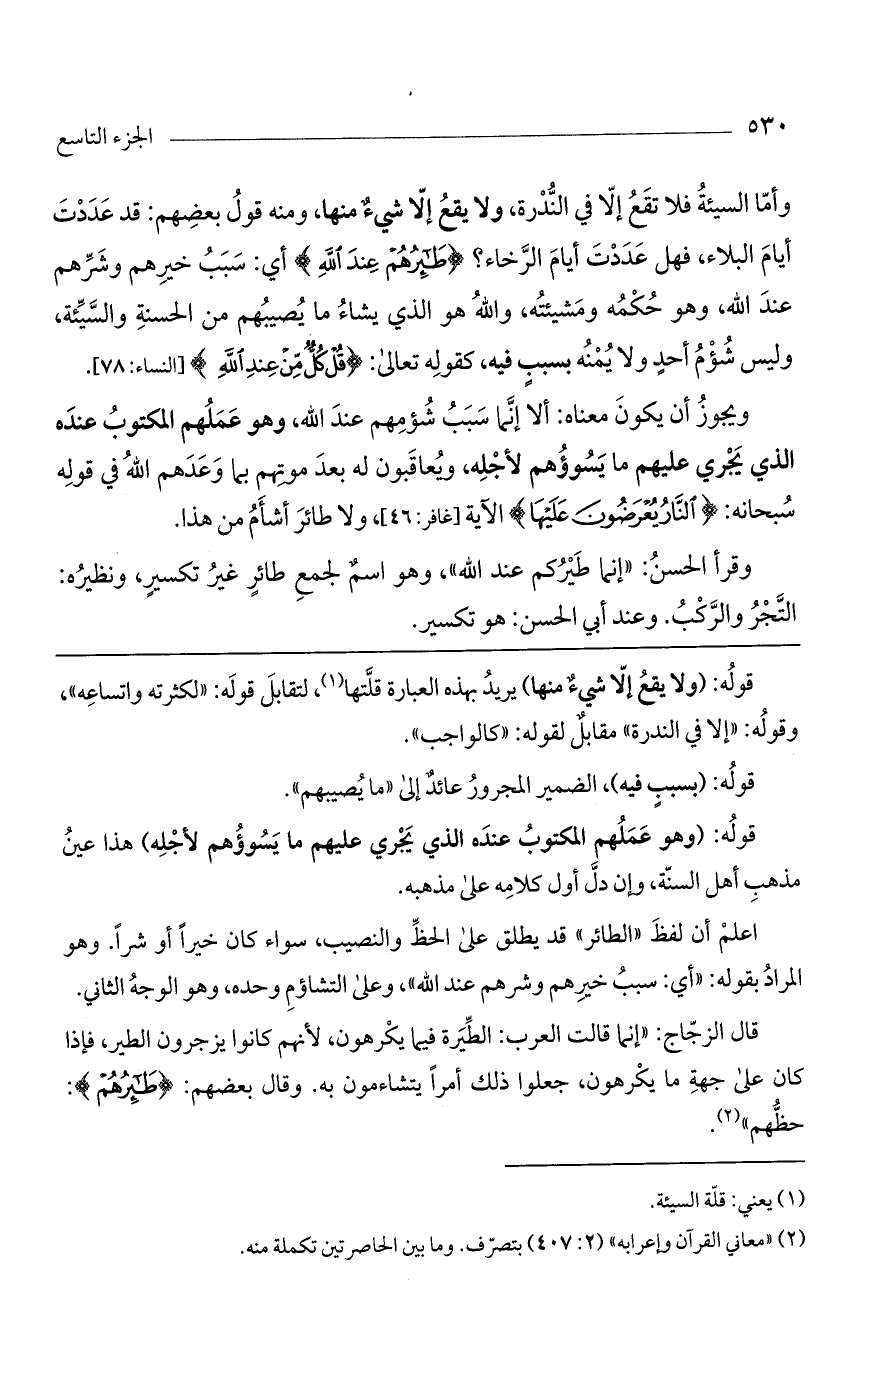 ٥٣٠ الجزء التاسع
وأمّا السيئةُ فلا تقَعُ إلّا في النُّدْرة، ولا يقعُ إلّا شيءٌ منها، ومنه قولُ بعضِهم: قد عَدَدْتَ
أيامَ البلاء، فهل عَدَدْتَ أيامَ الرَّخاء؟ ﴿طَٰٓئِرُهُمْ عِندَ ٱللَّهِ﴾ أي: سَبَبُ خيرِهم وشَرِّهم
عندَ الله، وهو حُكْمُه ومَشيئتُه، واللهُ هو الذي يشاءُ ما يُصيبُهم من الحسنةِ والسَّيِّئة،
وليس شُؤْمُ أحدٍ ولا يُمْنُه بسببٍ فيه، كقولِه تعالىٰ: ﴿قُلْ كُلٌّ مِّنْ عِندِ ٱللَّهِ﴾ [النساء: ٧٨].
ويجوزُ أن يكونَ معناه: ألا إنَّما سَبَبُ شُؤمِهم عندَ الله، وهو عَمَلُهم المكتوبُ عندَه
الذي يَجْري عليهم ما يَسُوؤُهم لأجْلِه، ويُعاقَبون له بعدَ موتِهم بما وَعَدَهم اللهُ في قولِه
سُبحانه: ﴿ٱلنَّارُ يُعْرَضُونَ عَلَيْهَا﴾ الآية [غافر: ٤٦]، ولا طائرَ أشأَمُ من هذا.
وقرأ الحسنُ: «إنما طَيْرُكم عند الله»، وهو اسمٌ لجمعِ طائرٍ غيرُ تكسيرٍ، ونظيرُه:
التَّجْرُ والرَّكْبُ. وعند أبي الحسن: هو تكسير.
قولُه: (ولا يقعُ إلّا شيءٌ منها) يريدُ بهذه العبارة قلَّتها(١)، لتقابلَ قولَه: «لكثرته واتساعِه»،
وقولُه: «إلا في الندرة» مقابلٌ لقوله: «كالواجب».
قولُه: (بسببٍ فيه)، الضمير المجرورُ عائدٌ إلىٰ «ما يُصيبهم».
قولُه: (وهو عَمَلُهم المكتوبُ عندَه الذي يَجْري عليهم ما يَسُوؤُهم لأجْلِه) هذا عينُ
مذهبِ أهل السنّة، وإن دلَّ أول كلامِه علىٰ مذهبه.
اعلمْ أن لفظَ «الطائر» قد يطلق علىٰ الحظِّ والنصيب، سواء كان خيراً أو شراً. وهو
المرادُ بقوله: «أي: سببُ خيرِهم وشرهم عند الله»، وعلىٰ التشاؤمِ وحده، وهو الوجهُ الثاني.
قال الزجّاج: «إنما قالت العرب: الطِّيَرة فيما يكْرهون، لأنهم كانوا يزجرون الطير، فإذا
كان علىٰ جهةِ ما يكْرهون، جعلوا ذلك أمراً يتشاءمون به. وقال بعضهم: ﴿طَٰٓئِرُهُمْ﴾:
حظُّهم»(٢).
(١) يعني: قلّة السيئة.
(٢) «معاني القرآن وإعرابه» (٢: ٤٠٧) بتصرّف. وما بين الحاصرتين تكملة منه.